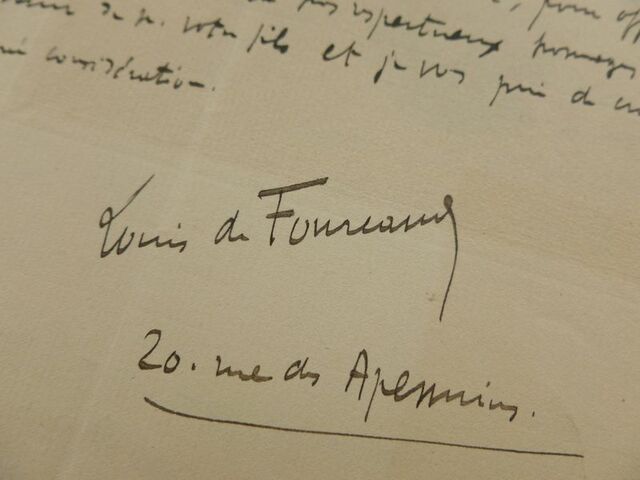 pour off
plus respectueux hommages
de m. votre fils et je vous prie de
considération.
Louis de Fourcaud
20. rue des Apennins.